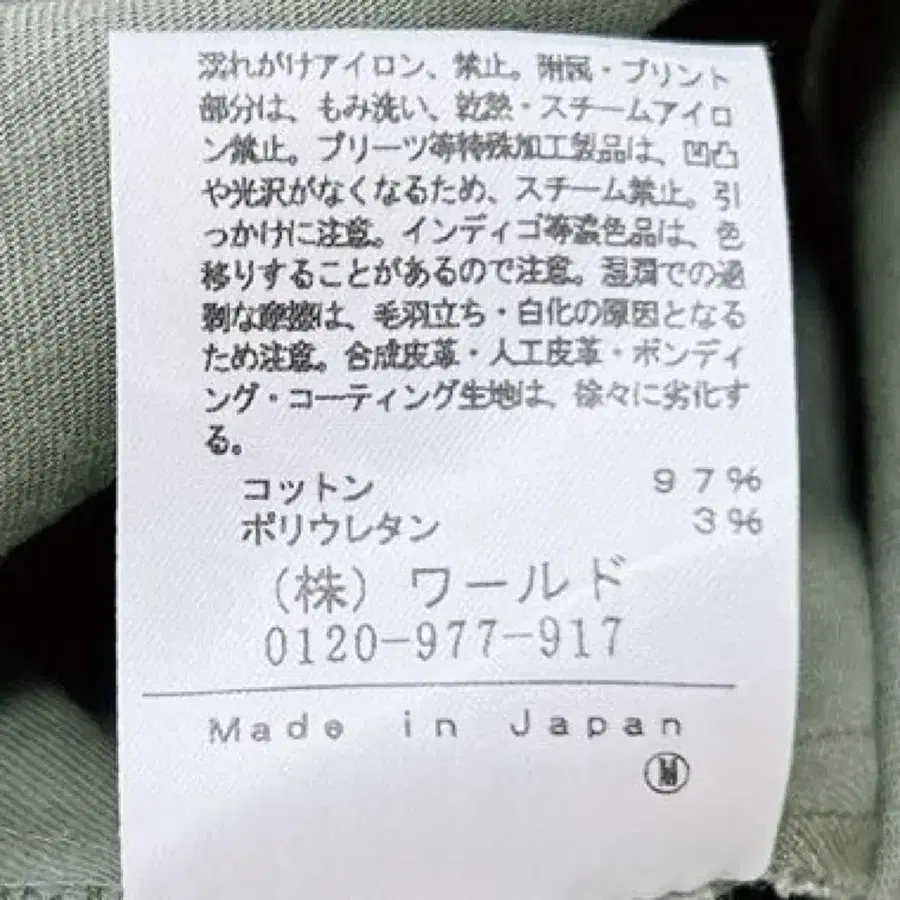 濡れがけアイロン、禁止。附属・プリント
部分は、もみ洗い、乾熱・スチームアイロ
ン禁止。プリーツ等特殊加工製品は、凹凸
や光沢がなくなるため、スチーム禁止。引
っかけに注意。インディゴ等濃色品は、色
移りすることがあるので注意。湿潤での過
剰な摩擦は、毛羽立ち・白化の原因となる
ため注意。合成皮革・人工皮革・ボンディ
ング・コーティング生地は、徐々に劣化す
る。
コットン 97%
ポリウレタン 3%
(株) ワールド
0120-977-917
Made in Japan